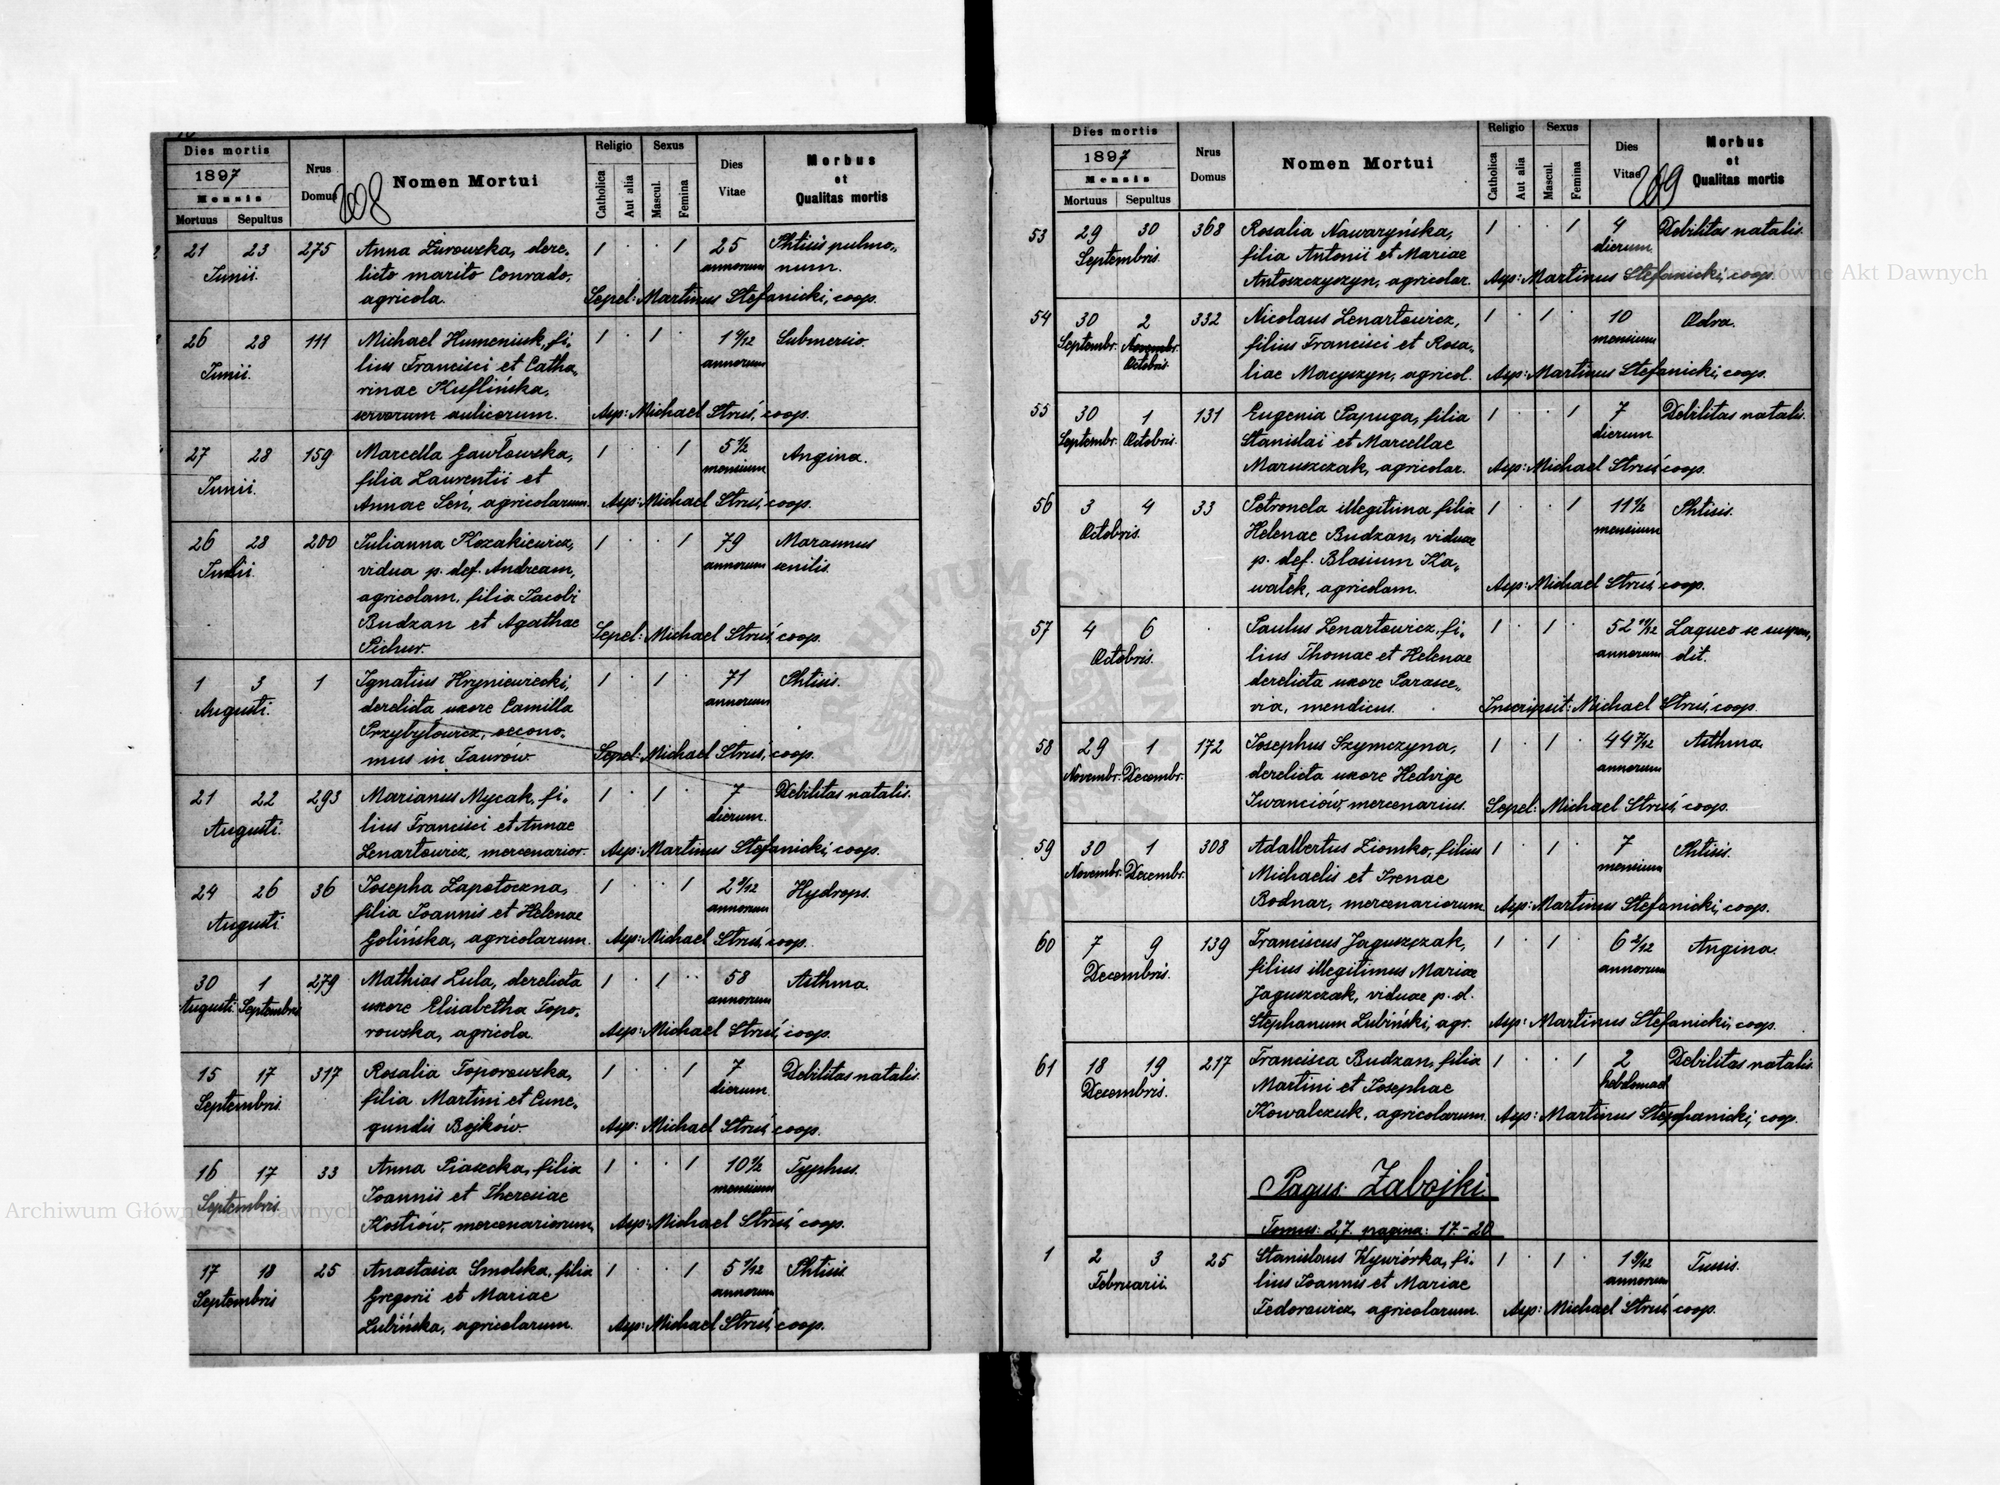 Dies mortis
1897
Mensis
Mortuus Sepultus
Nrus
Domus
208
Nomen Mortui
Religio
Catholica
Aut alia
Sexus
Mascul.
Femina
Dies
Vitae
Morbus
et
Qualitas mortis
21 23 275 Anna Żurowska, dere- 1 . . 1 25 Phtisis pulmo-
Junii. licto marito Conrado, annorum num.
agricola. Sepel: Martinus Stefanicki, coop.
26 28 111 Michael Humeniuk, fi- 1 . 1 . Submersio.
Junii. lius Francisci et Catha- annorum
rinae Kuflińska,
servorum aulicorum. Asp: Michael Struś, coop.
27 28 159 Marcella Gawłowska, 1 . . 1 5 1/2 Angina.
Junii. filia Laurentii et mensium
Annae Seń, agricolarum. Asp: Michael Struś, coop.
26 28 200 Julianna Kozakiewicz, 1 . . 1 79 Marasmus
vidua p. def. Andream, annorum senilis.
agricolam, filia Jacobi
Budzan et Agathae Sepel: Michael Struś, coop.
Pichur.
1 3 1 Ignatius Hryniewiecki, 1 . 1 . 71 Phtisis.
Augusti. derelicta uxore Camilla annorum
Przybyłowicz, oecono-
mus in Taurów. Sepel: Michael Struś, coop.
21 22 293 Marianus Mycak, fi- 1 . 1 . 7 Debilitas natalis.
Augusti. lius Francisci et Annae dierum.
Lenartowicz, mercenarior. Asp: Martinus Stefanicki, coop.
24 26 36 Josepha Zapotoczna, 1 . . 1 Hydrops.
Augusti. filia Joannis et Helenae annorum
Golińska, agricolarum. Asp: Michael Struś, coop.
30 1 279 Mathias Lula, derelicta 1 . 1 . . 58 Asthma.
Augusti. Septembris uxore Elisabetha Topo- annorum
rowska, agricola. Asp: Michael Struś, coop.
15 17 317 Rosalia Toporowska, 1 . . 1 7 Debilitas natalis.
Septembris. filia Martini et Cune- dierum.
gundis Bojków. Asp: Michael Struś, coop.
16 17 33 Anna Piasecka, filia 1 . . 1 10 1/2 Typhus.
Septembris. Joannis et Theresiae mensium
Kostiów, mercenariorum, Asp: Michael Struś, coop.
17 18 25 Anastasia Smolska, filia 1 . . 1 Phtisis.
Septembris Gregorii et Mariae annorum
Lubińska, agricolarum. Asp: Michael Struś, coop.
Dies mortis
1897
Mensis
Mortuus Sepultus
Nrus
Domus
Nomen Mortui
Religio
Catholica
Aut alia
Sexus
Mascul.
Femina
Dies
Vitae
209
Morbus
et
Qualitas mortis
53 29 30 368 Rosalia Nawaryńska, 1 . . 1 4 Debilitas natalis.
Septembris. filia Antonii et Mariae dierum.
Antoszczyszyn, agricolar. Asp: Martinus Stefanicki, coop.
54 30 2 332 Nicolaus Lenartowicz, 1 . 1 . 10 Odra.
Septembr. Novembr. filius Francisci et Rosa- mensium
Octobris.
liae Macyszyn, agricol. Asp: Martinus Stefanicki, coop.
55 30 1 131 Eugenia Papuga, filia 1 . . 1 7 Debilitas natalis.
Septembr. Octobris. Stanislai et Marcellae dierum.
Maruszczak, agricolar. Asp: Michael Struś, coop.
56 3 4 33 Petronela illegitima filia 1 . . 1 11 1/2 Phtisis.
Octobris. Helenae Budzan, viduae mensium
p. def. Blasium Ka-
wałek, agricolam. Asp: Michael Struś, coop.
57 4 6 . Paulus Lenartowicz, fi- 1 . 1 . Laqueo se suspen-
Octobris. lius Thomae et Helenae annorum dit.
derelicta uxore Parasce-
via, mendicus. Inscripsit: Michael Struś, coop.
58 29 1 172 Josephus Szymczyna, 1 . 1 . Asthma.
Novembr. Decembr. derelicta uxore Hedvige annorum
Iwanciów, mercenarius. Sepel: Michael Struś, coop.
59 30 1 308 Adalbertus Ziomko, filius 1 . 1 . 7 Phtisis.
Novembr. Decembr. Michaelis et Irenae mensium
Bodnar, mercenariorum. Asp: Martinus Stefanicki, coop.
60 7 9 139 Franciscus Jaguszczak, 1 . 1 . 6 2/12 Angina.
Decembris. filius illegitimus Mariae annorum
Jaguszczak, viduae p. d.
Stephanum Lubiński, agr. Asp: Martinus Stefanicki, coop.
61 18 19 217 Francisca Budzan, filia 1 . . 1 2 Debilitas natalis.
Decembris. Martini et Josephae hebdomad.
Kowalczuk, agricolarum. Asp: Martinus Stephanicki, coop.
Pagus: Zabojki.
Tomus: 27. pagina: 17-20
1 2 3 25 Stanislaus Wywiórka, fi- 1 . 1 . Tussis.
Februarii. lius Joannis et Mariae annorum
Fedorowicz, agricolarum. Asp: Michael Struś, coop.
Główne Akt Dawnych
Archiwum Główne Akt Dawnych